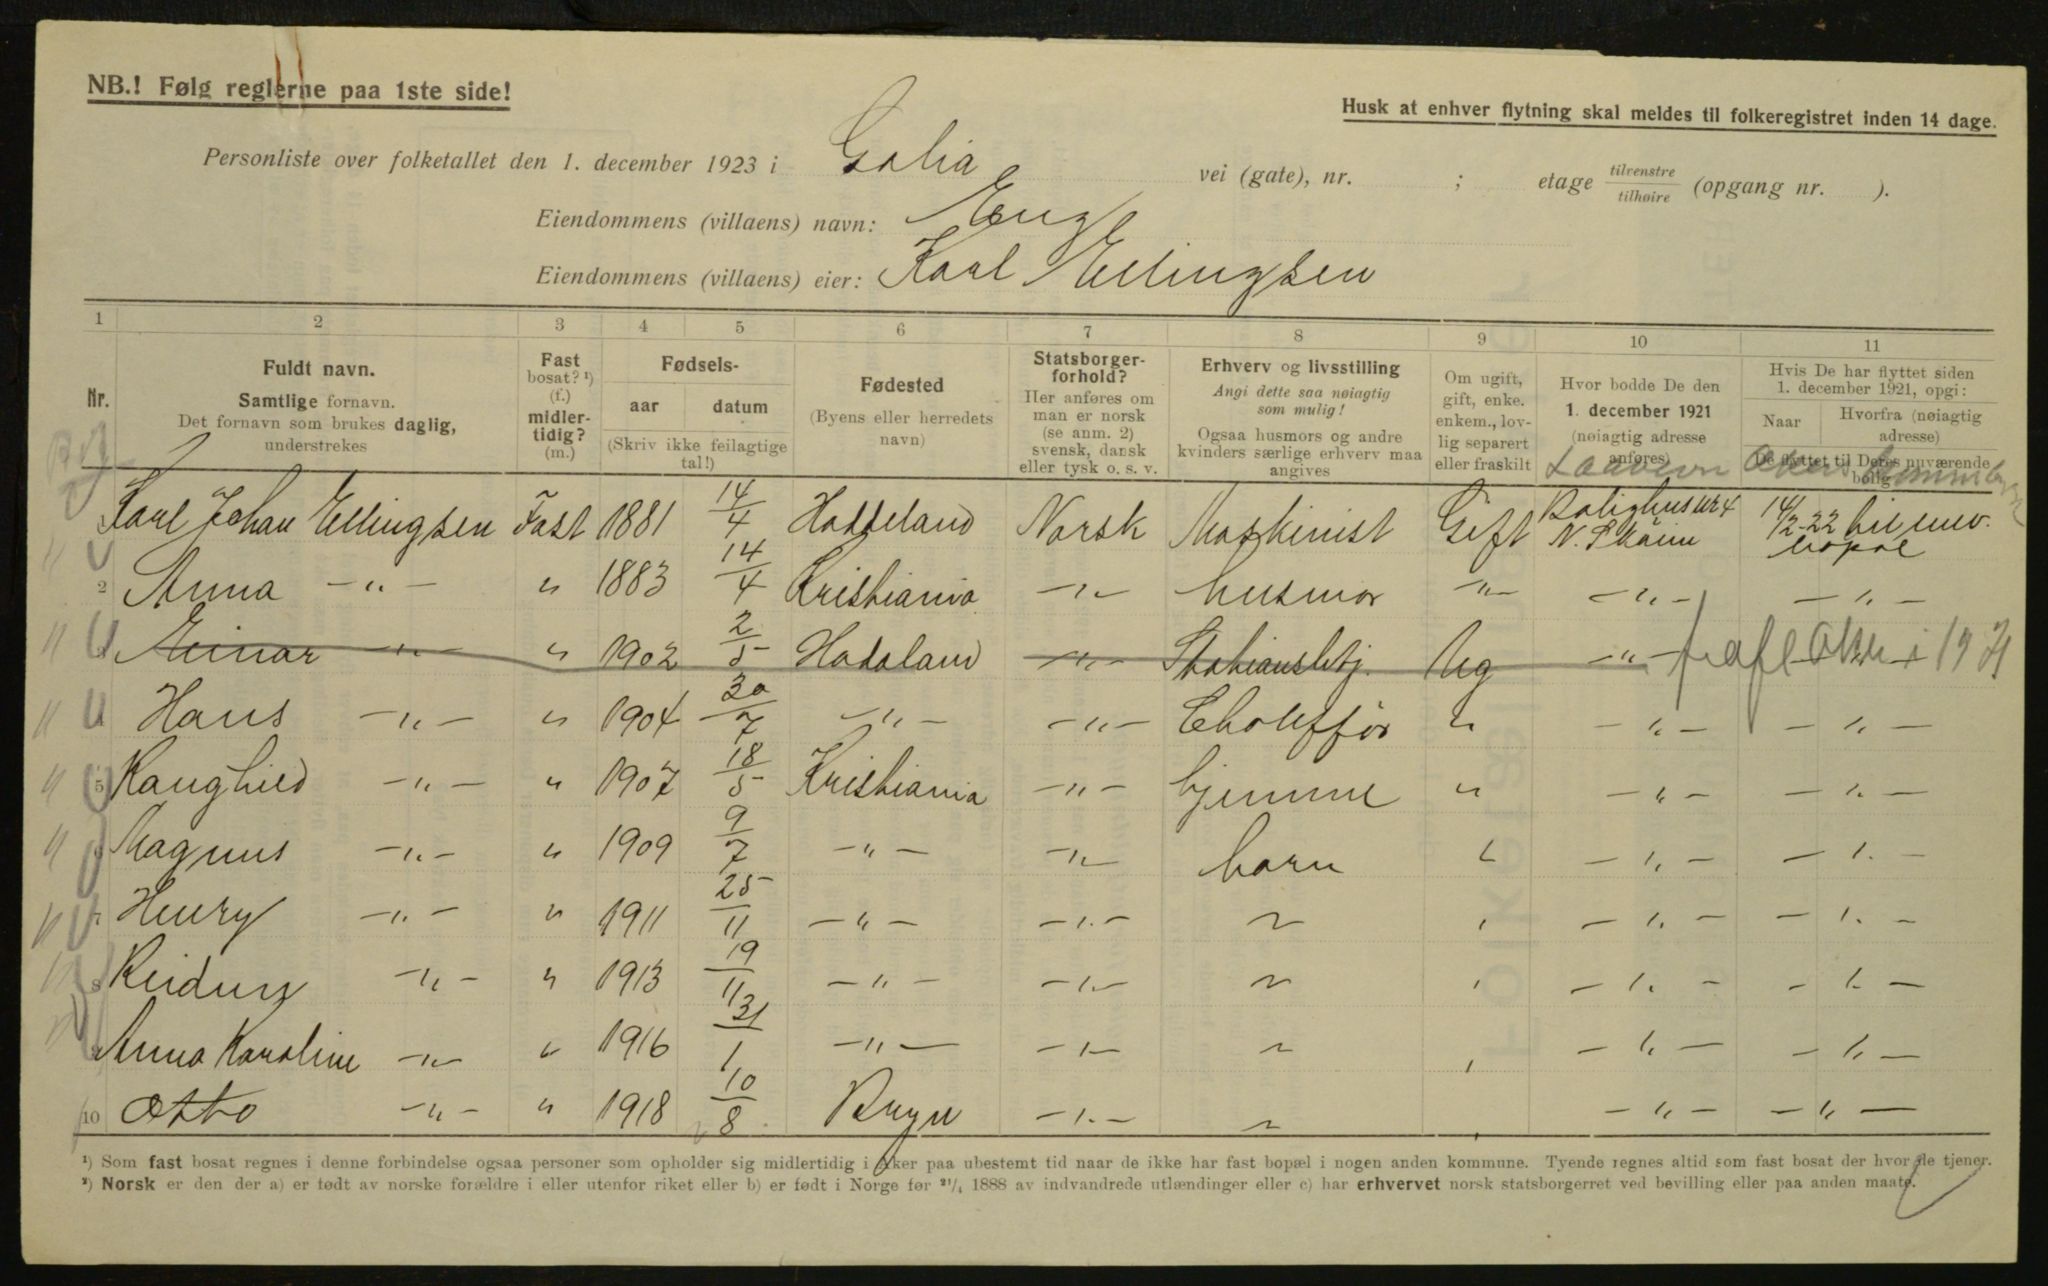 NB.! Følg reglerne paa 1ste side!
Husk at enhver flytning skal meldes til folkeregistret inden 14 dage.
Personliste over folketallet den 1. december 1923 i Golia vei (gate), nr. ; etage tilvenstre tilhøire (opgang nr. ).
Eiendommens (villaens) navn: Eng
Eiendommens (villaens) eier: Karl Ellingsen
1 2 3 4 5 6 7 8 9 10 11
Nr.
Fuldt navn.
Samtlige fornavn.
Det fornavn som brukes daglig,
understrekes
Fast
bosat? ¹)
(f.)
midler-
tidig?
(m.)
Fødsels-
aar datum
(Skriv ikke feilagtige
tal!)
Fødested
(Byens eller herredets
navn)
Statsborger-
forhold?
Her anføres om
man er norsk
(se anm. 2)
svensk, dansk
eller tysk o. s. v.
Erhverv og livsstilling
Angi dette saa nøiagtig
som mulig!
Ogsaa husmors og andre
kvinders særlige erhverv maa
angives
Om ugift,
gift, enke.
enkem., lov-
lig separert
eller fraskilt
Hvor bodde De den
1. december 1921
(nøiagtig adresse
anføres)
Hvis De har flyttet siden
1. december 1921, opgi:
Naar Hvorfra (nøiagtig
adresse)
De flyttet til Deres nuværende
bolig
Karl Johan Ellingsen Fast 1881 14/4 Haddeland Norsk Maskinist Gift Bolighus nr 4 N. Skøien 14/2-22 hit nuv. bopæl
2 Anna -"- " 1883 14/4 Kristiania -"- husmor -"- -"- -"-
3 Einar -"- " 1902 2/5 Hadaland -"- Ug -"- Aker i 1921
4 Hans -"- " 1904 30/7 -"- -"- Choufför " -"- -"-
5 Ranghild -"- " 1907 18/5 Kristiania -"- hjemme " -"- -"-
6 Magnus -"- " 1909 9/7 -"- -"- barn " -"- -"-
7 Henry -"- " 1911 25/11 -"- -"- " " -"- -"-
8 Reidun -"- " 1913 19/11 -"- -"- " " -"- -"-
9 Anna Karoline -"- " 1916 31/1 -"- -"- " " -"- -"-
10 Otto -"- " 1918 10/8 Bryn -"- " " -"- -"-
¹) Som fast bosat regnes i denne forbindelse ogsaa personer som opholder sig midlertidig i Aker paa ubestemt tid naar de ikke har fast bopæl i nogen anden kommune. Tyende regnes altid som fast bosat der hvor de tjener.
²) Norsk er den der a) er født av norske forældre i eller utenfor riket eller b) er født i Norge før ²¹/₄ 1888 av indvandrede utlændinger eller c) har erhvervet norsk statsborgerret ved bevilling eller paa anden maate.